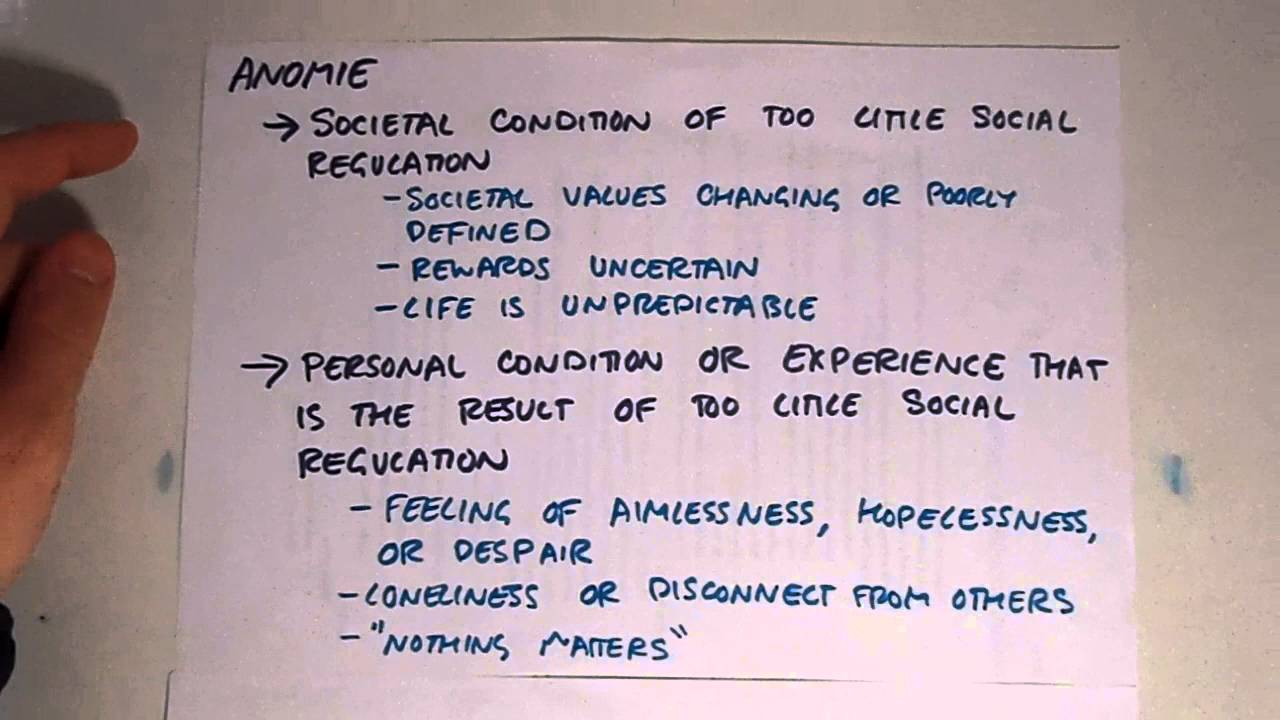 ANOMIE
→ SOCIETAL CONDITION OF TOO LITTLE SOCIAL
REGULATION
- SOCIETAL VALUES CHANGING OR POORLY
DEFINED
- REWARDS UNCERTAIN
- LIFE IS UNPREDICTABLE
→ PERSONAL CONDITION OR EXPERIENCE THAT
IS THE RESULT OF TOO LITTLE SOCIAL
REGULATION
- FEELING OF AIMLESSNESS, HOPELESSNESS,
OR DESPAIR
- LONELINESS OR DISCONNECT FROM OTHERS
- "NOTHING MATTERS"